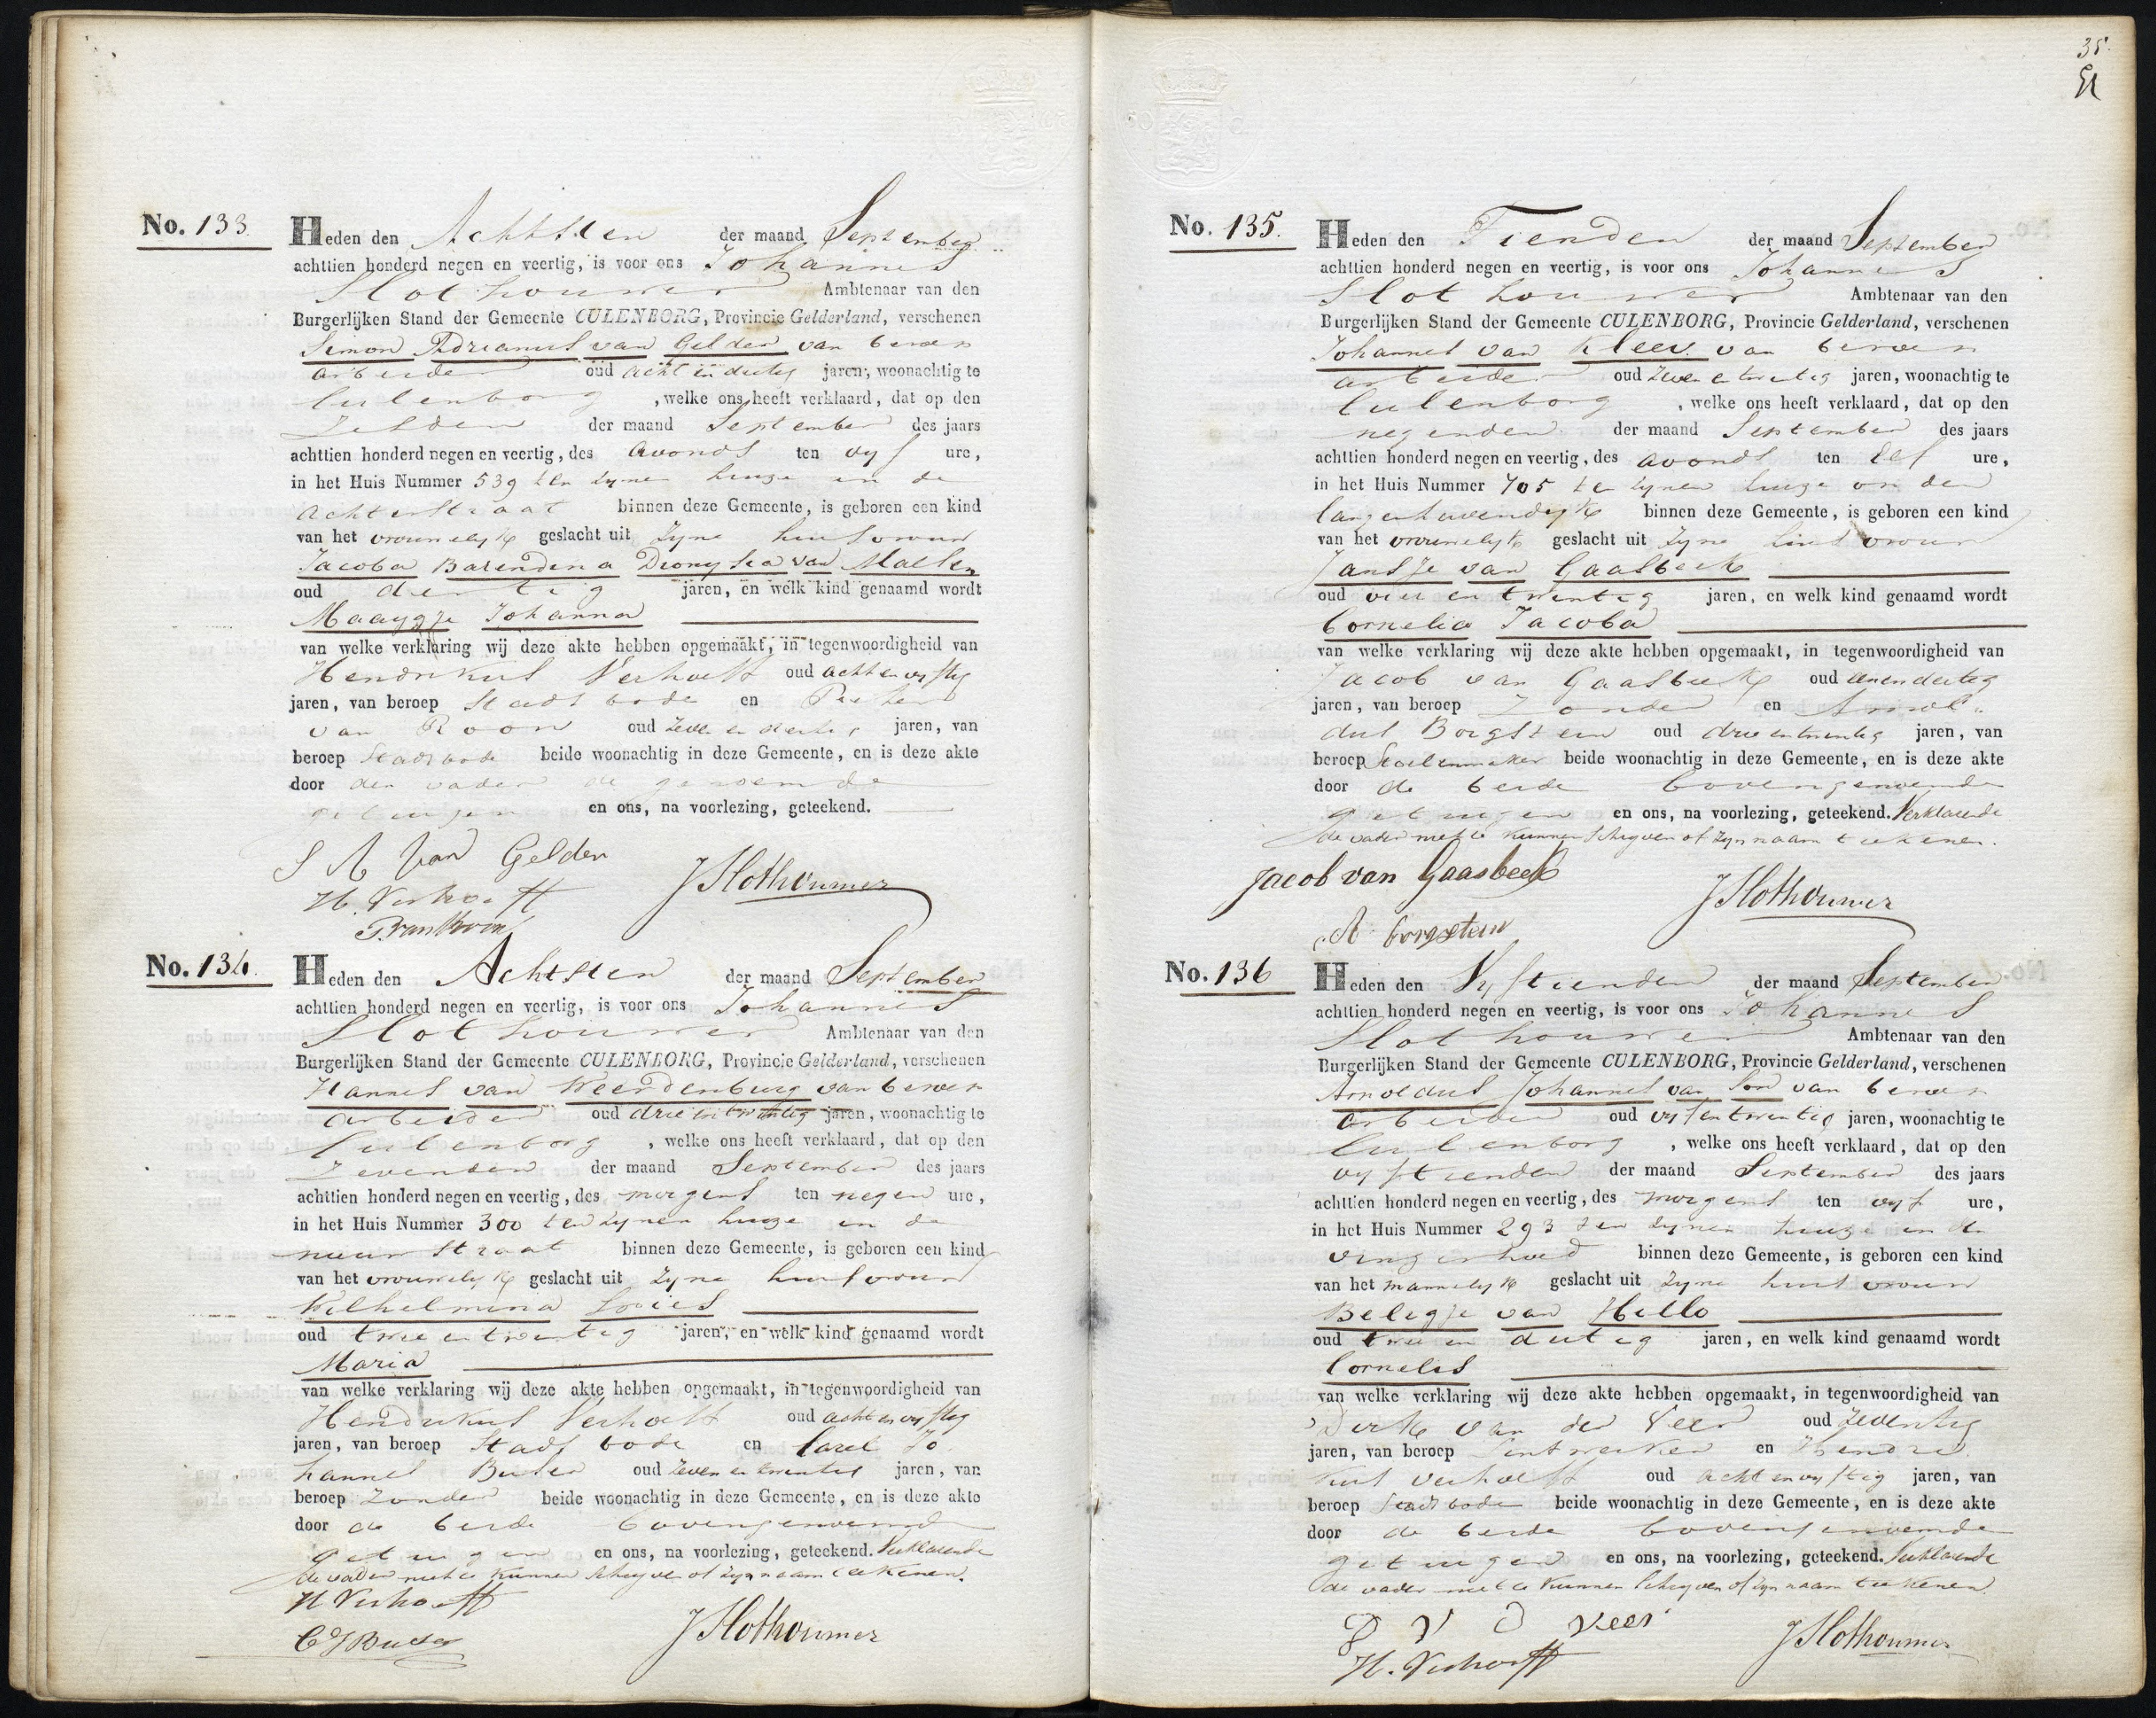 No. 133
Heden den Achtsten der maand September
achttien honderd negen en veertig, is voor ons Johannes
Slothouwer Ambtenaar van den
Burgerlijken Stand der Gemeente CULENBORG, Provincie Gelderland, verschenen
Simon Adrianus van Gelder van beroep
arbeider oud acht en dertig jaren, woonachtig te
Culenborg , welke ons heeft verklaard, dat op den
Zesden der maand September des jaars
achttien honderd negen en veertig, des avonds ten vyf ure,
in het Huis Nummer 539 ten zynen huize in de
Achterstraat binnen deze Gemeente, is geboren een kind
van het vrouwelyk geslacht uit zyne huisvrouw
Jacoba Barendina Dionysia van Maelsen
oud dertig jaren, en welk kind genaamd wordt
Maaygje Johanna
van welke verklaring wij deze akte hebben opgemaakt, in tegenwoordigheid van
Hendrikus Verhoeff oud acht en vyftig
jaren, van beroep Stads bode en Pieter
van Roon oud zeven en dertig jaren, van
beroep Stadsbode beide woonachtig in deze Gemeente, en is deze akte
door den vader de genoemde
getuigen en ons, na voorlezing, geteekend.
S A van Gelder
H. Verhoeff JSlothouwer
P. van Roon
No. 134.
Heden den Achtsten der maand September
achttien honderd negen en veertig, is voor ons Johannes
Slothouwer Ambtenaar van den
Burgerlijken Stand der Gemeente CULENBORG, Provincie Gelderland, verschenen
Hannes van Weerdenburg van beroep
arbeider oud drie en twintig jaren, woonachtig te
Culenborg , welke ons heeft verklaard, dat op den
Zevenden der maand September des jaars
achttien honderd negen en veertig, des morgens ten negen ure,
in het Huis Nummer 300 ten zynen huize in de
nieuw straat binnen deze Gemeente, is geboren een kind
van het vrouwelyk geslacht uit zyne huisvrouw
Wilhelmina Looies
oud twee en twintig jaren, en welk kind genaamd wordt
Maria
van welke verklaring wij deze akte hebben opgemaakt, in tegenwoordigheid van
Hendrikus Verhoeff oud acht en vyftig
jaren, van beroep Stads bode en Carel Jo
hannes Buter oud zeven en twintig jaren, van
beroep zonder beide woonachtig in deze Gemeente, en is deze akte
door de beide bovengenoemde
getuigen en ons, na voorlezing, geteekend. Verklarende
de vader niet te kunnen schryven of zyn naam teekenen.
H Verhoeff
C J Buter JSlothouwer
35.
No. 135.
Heden den Tienden der maand September
achttien honderd negen en veertig, is voor ons Johannes
Slothouwer Ambtenaar van den
Burgerlijken Stand der Gemeente CULENBORG, Provincie Gelderland, verschenen
Johannes van Kleev van beroep
arbeider oud zeven en twintig jaren, woonachtig te
Culenborg , welke ons heeft verklaard, dat op den
negenden der maand September des jaars
achttien honderd negen en veertig, des avonds ten elf ure,
in het Huis Nummer 705 ten zynen huize op den
langenhavendyk binnen deze Gemeente, is geboren een kind
van het vrouwelyk geslacht uit zyne huisvrouw
Jansje van Gaasbeek
oud vier en twintig jaren, en welk kind genaamd wordt
Cornelia Jacoba
van welke verklaring wij deze akte hebben opgemaakt, in tegenwoordigheid van
Jacob van Gaasbeek oud eenendertig
jaren, van beroep Zonder en Arnol
dus Borgstein oud drie en twintig jaren, van
beroep Stoelenmaker beide woonachtig in deze Gemeente, en is deze akte
door de beide bovengenoemde
getuigen en ons, na voorlezing, geteekend. Verklarende
de vader niet te kunnen schryven of zyn naam teekenen.
Jacob van Gaasbeek
A. borgstein JSlothouwer
No. 136
Heden den Vyftienden der maand September
achttien honderd negen en veertig, is voor ons Johannes
Slothouwer Ambtenaar van den
Burgerlijken Stand der Gemeente CULENBORG, Provincie Gelderland, verschenen
Arnoldus Johannes van Son van beroep
arbeider oud vyf en twintig jaren, woonachtig te
Culenborg , welke ons heeft verklaard, dat op den
vyftienden der maand September des jaars
achttien honderd negen en veertig, des morgens ten vyf ure,
in het Huis Nummer 293 ten zynen huize in de
vingerhoed binnen deze Gemeente, is geboren een kind
van het mannelyk geslacht uit zyne huisvrouw
Beligje van Hillo
oud twee en dertig jaren, en welk kind genaamd wordt
Cornelis
van welke verklaring wij deze akte hebben opgemaakt, in tegenwoordigheid van
Dirk van der Veer oud Zeventig
jaren, van beroep Lintwerker en Hendri
kus Verhoeff oud acht en vyftig jaren, van
beroep Stadsbode beide woonachtig in deze Gemeente, en is deze akte
door de beide bovengenoemde
getuigen en ons, na voorlezing, geteekend. Verklarende
de vader niet te kunnen schryven of zyn naam teekenen.
D V D Veer
H. Verhoeff JSlothouwer